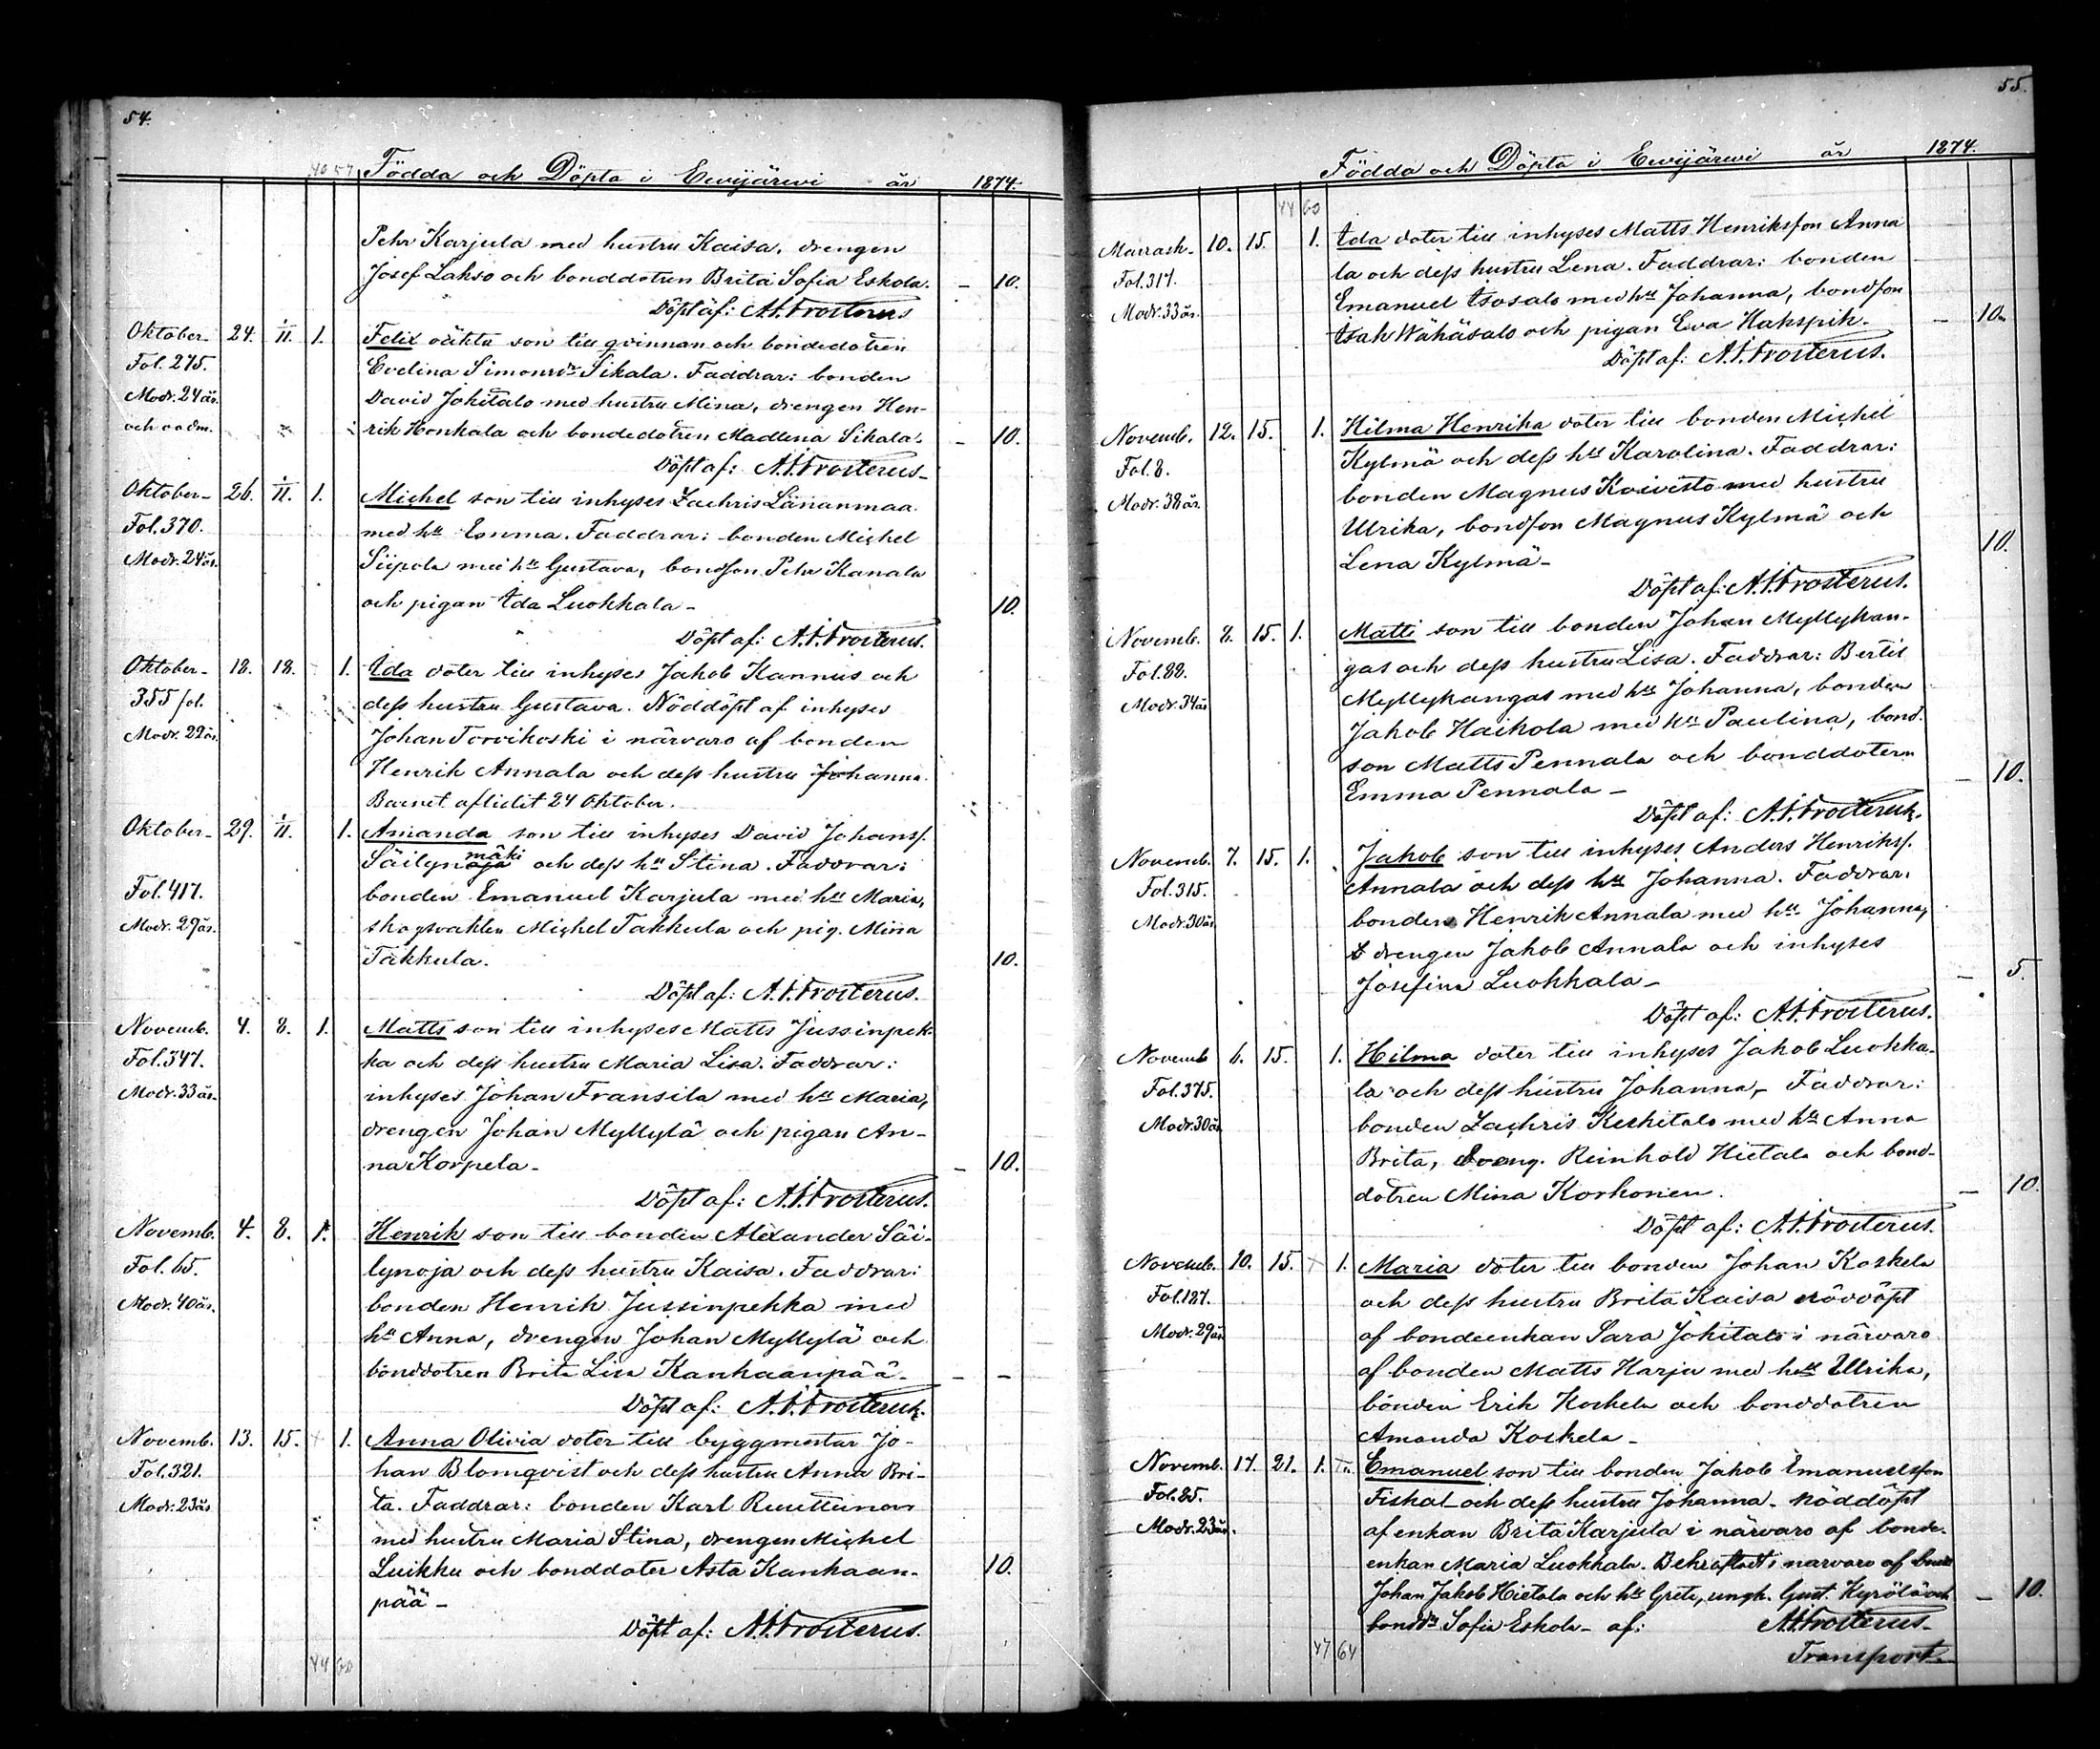 54.
40 57 Födda och Döpta i Ewijärwi år 1874.
Pehr Karjula med hustru Kaisa, drengen
Josef Lakso och bonddotren Brita Sofia Eskola. - 10.
Döpt af: A. F. Frosterus
Oktober- 24. 1/11. 1. Felix oäkta son till qvinnan och bondedotren
Fol. 275. Evelina Simonsdr Sikala. Faddrar: bonden
Modr. 24 år. David Jokitalo med hustru Mina, drengen Hen-
och oadm. rik Honkala och bondedotren Madlena Sikala. - 10.
Döpt af: A. F. Frosterus-
Oktober- 26. 1/11. 1. Michel son till inhyses Zachris Länanmaa
Fol. 370. med hu Emma. Faddrar: bonden Michel
Modr. 24 år. Siipola med hu Gustava, bondson Pehr Kanala
och pigan Ida Luokkala- 10.
Döpt af: A. F. Frosterus.
Oktober- 18. 18. 1. Ida doter till inhyses Jakob Kannus och
355 fol. dess hustru Gustava. Nöddöpt af inhyses
Modr. 22 år. Johan Torvikoski i närvaro af bonden
Henrik Annala och dess hustru Johanna.
Barnet aflidit 24 Oktober.
Oktober- 29. 1/11. 1. Amanda son till inhyses David Johanss.
mäki
Säilynoja och dess hu Stina. Faddrar:
Fol. 417. bonden Emanuel Karjula med hu Maria,
Modr. 29 år. skogsvakten Michel Takkula och pig. Mina
Takkula. 10.
Döpt af: A. F. Frosterus.
Novemb. 4. 8. 1. Matts son till inhyses Matts Jussinpek-
Fol. 347. ka och dess hustru Maria Lisa. Faddrar:
Modr. 33 år. inhyses Johan Fransila med hu Maria,
drengen Johan Myllylä och pigan An-
na Korpela- - 10.
Döpt af: A. F. Frosterus.
Novemb. 4. 8. 1. Henrik son till bonden Alexander Säi-
Fol. 65. lynoja och dess hustru Kaisa. Faddrar:
Modr. 40 år. bonden Henrik Jussinpekka med
hu Anna, drengen Johan Myllylä och
bonddotren Brita Lisa Kanhaanpää. - -
Döpt af: A. F. Frosterus.
Novemb. 13. 15. 1. Anna Olivia doter till byggmestar Jo-
Fol. 321. han Blomqvist och dess hustru Anna Bri-
Modr. 23 år ta. Faddrar: bonden Karl Ruuttunen
med hustru Maria Stina, drengen Michel
Luikku och bonddoter Asta Kanhaan- 10.
pää-
Döpt af: A. F. Frosterus.
44 60
55.
Födda och Döpta i Ewijärwi år 1874.
44 60
10. 15. 1. Ida doter till inhyses Matts Henriksson Anna
Fol. 317. la och dess hustru Lena. Faddrar: bonden
Modr. 33 år. Emanuel Isosalo med hu Johanna, bondson
Isak Wähäsalo och pigan Eva Hakspik. - 10.
Döpt af: A. F. Frosterus.
Novemb. 12. 15. 1. Hilma Henrika doter till bonden Michel
Fol. 8. Kylmä och dess hu Karolina. Faddrar:
Modr. 38 år. bonden Magnus Koivisto med hustru
Ulrika, bondson Magnus Kylmä och
Lena Kylmä- 10.
Döpt af: A. F. Frosterus.
Novemb. 8. 15. 1. Matti son till bonden Johan Myllykan-
Fol. 88. gas och dess hustru Lisa. Faddrar: Bertil
Modr. 34 år Myllykangas med hu Johanna, bonden
Jakob Haikola med hu Paulina, bond.
son Matts Pennala och bonddotern
Emma Pennala- - 10.
Döpt af: A. F. Frosterus.
Novemb. 7. 15. 1. Jakob son till inhyses Anders Henrikss.
Fol. 315. Annala och dess hu Johanna. Faddrar:
Modr. 30 år bonden Henrik Annala med hu Johanna,
drengen Jakob Annala och inhyses
Josefina Luokkala- - 5.
Döpt af: A. F. Frosterus.
Novemb 6. 15. 1. Hilma doter till inhyses Jakob Luokka-
Fol. 375. la och dess hustru Johanna,- Faddrar:
Modr. 30 år bonden Zachris Keskitalo med hu Anna
Brita, Dreng. Reinhold Hietala och bond-
dotren Mina Korhonen. - 10.
Döpt af: A. F. Frosterus.
Novemb. 10. 15. 1. Maria doter till bonden Johan Koskela
Fol. 187. och dess hustru Brita Kaisa nöddöpt
Modr. 29 år af bondeenkan Sara Jokitalo i närvaro
af bonden Matts Harju med hu Ulrika,
bonden Erik Koskela och bonddotren
Amanda Koskela-
Novemb. 17. 21. 1. Emanuel son till bonden Jakob Emanuelsson
Fol. 85. Fiskal och dess hustru Johanna- Nöddöpt
Modr. 23 år. af enkan Brita Karjula i närvaro af bonde-
enkan Maria Luokkala. Bekräftadt i närvaro af
Johan Jakob Hietala och hu Greta, ungk. Gust. Kyrölä och - 10.
bonddr Sofia Eskola- af: A. F. Frosterus-
47 64 Transport-